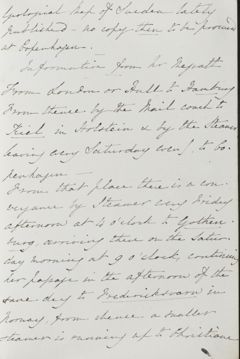 Geological Map of Sweden lately
published - no copy then to be procured
at Copenhagen. -
Information from Mr
From London or Hull to Hamburg
From thence by the Mail coach to
Kiel in Holstein & by the Steamer
leaving every Saturday even[g]. to Co-
penhagen -
From that place there is a con-
veyance by Steamer every Friday
afternoon at 4 o'clock to Gothen-
burg, arriving there on the Satur-
day morning at 9 o'clock, continuing
her passage in the afternoon of the
same day to Fredericksvarn in
Norway, from thence a smaller
steamer is running up to Christiana